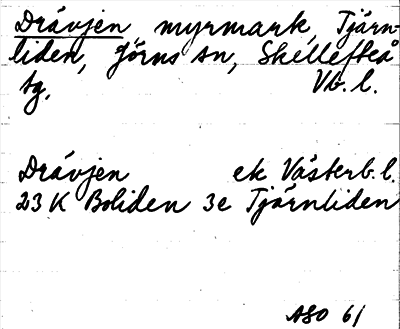 Drävjen myrmark, Tjärn-
liden, Jörns sn, Skellefteå
tg, Vb. l.
Drävjen ek Västerb. l.
23 K Boliden 3e Tjärnliden
ASO 61